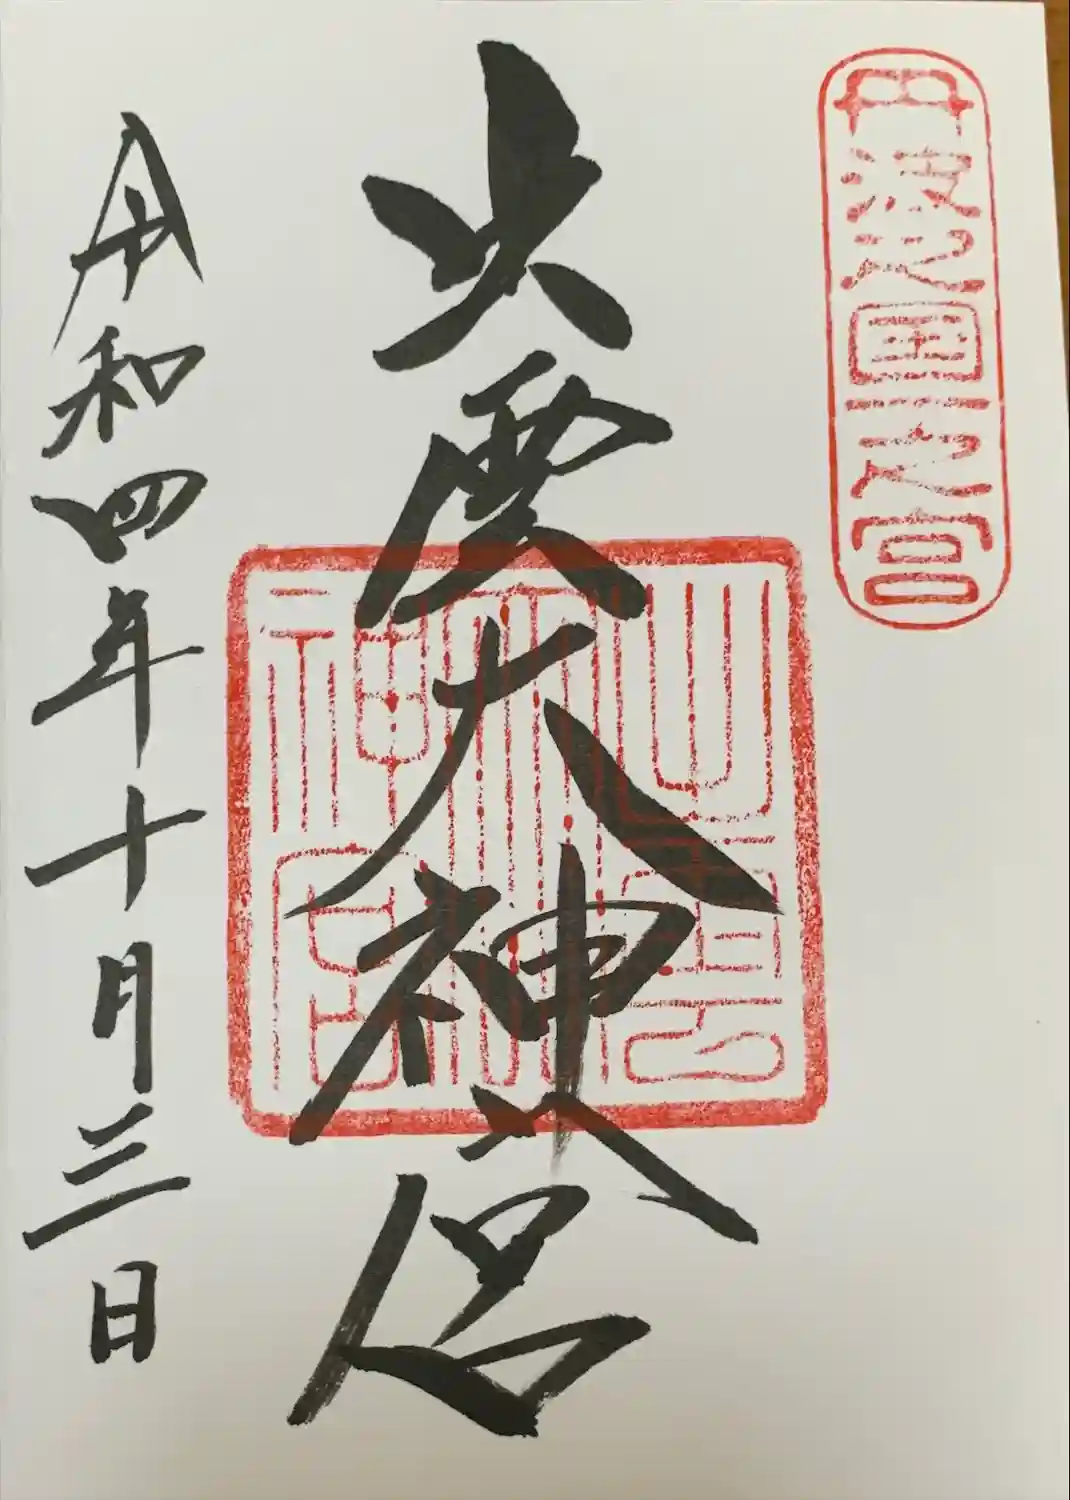 丹波之国一之宮
出雲大神宮
出雲大神宮
令和四年十月三日